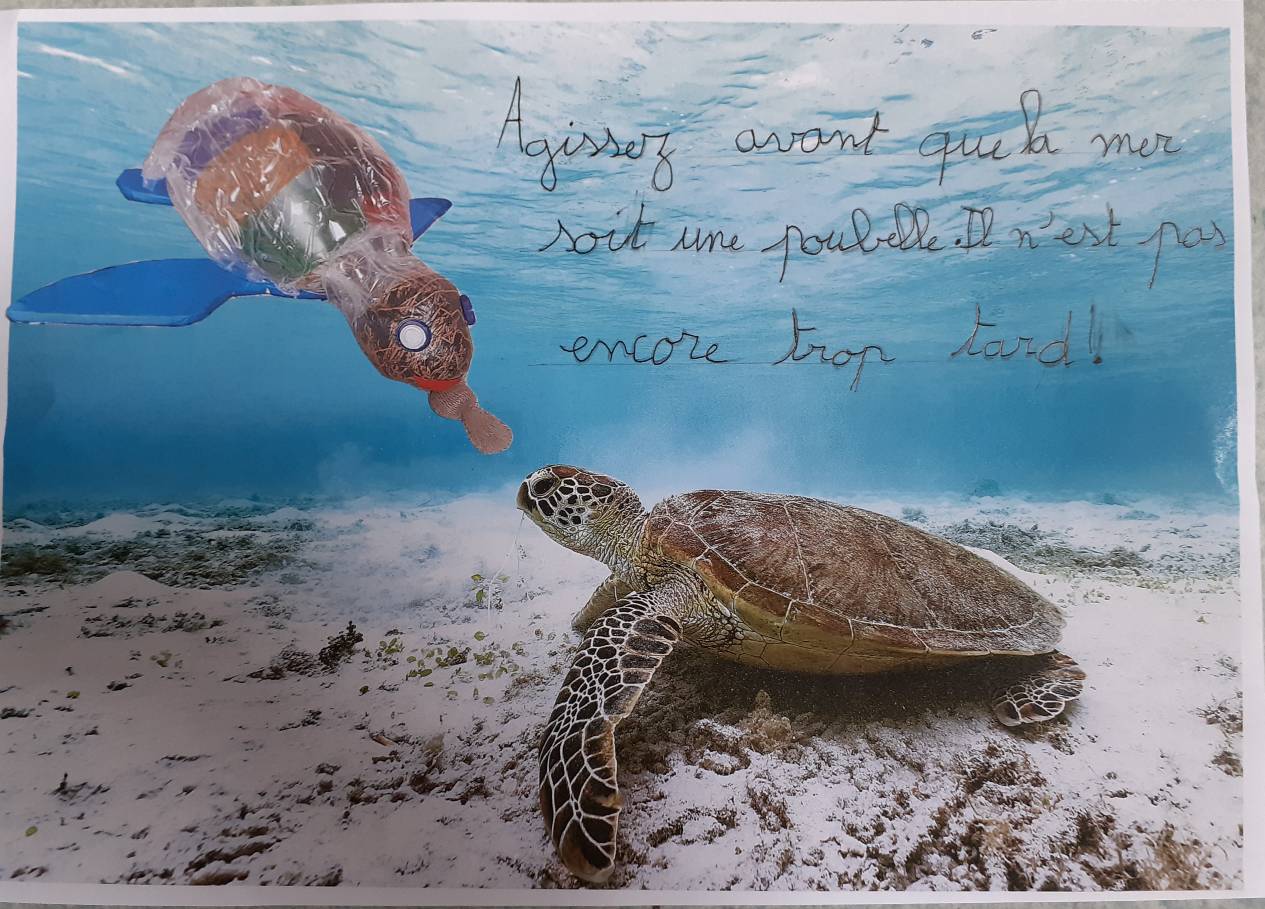 Agissez avant que la mer
soit une poubelle. Il n'est pas
encore trop tard!!